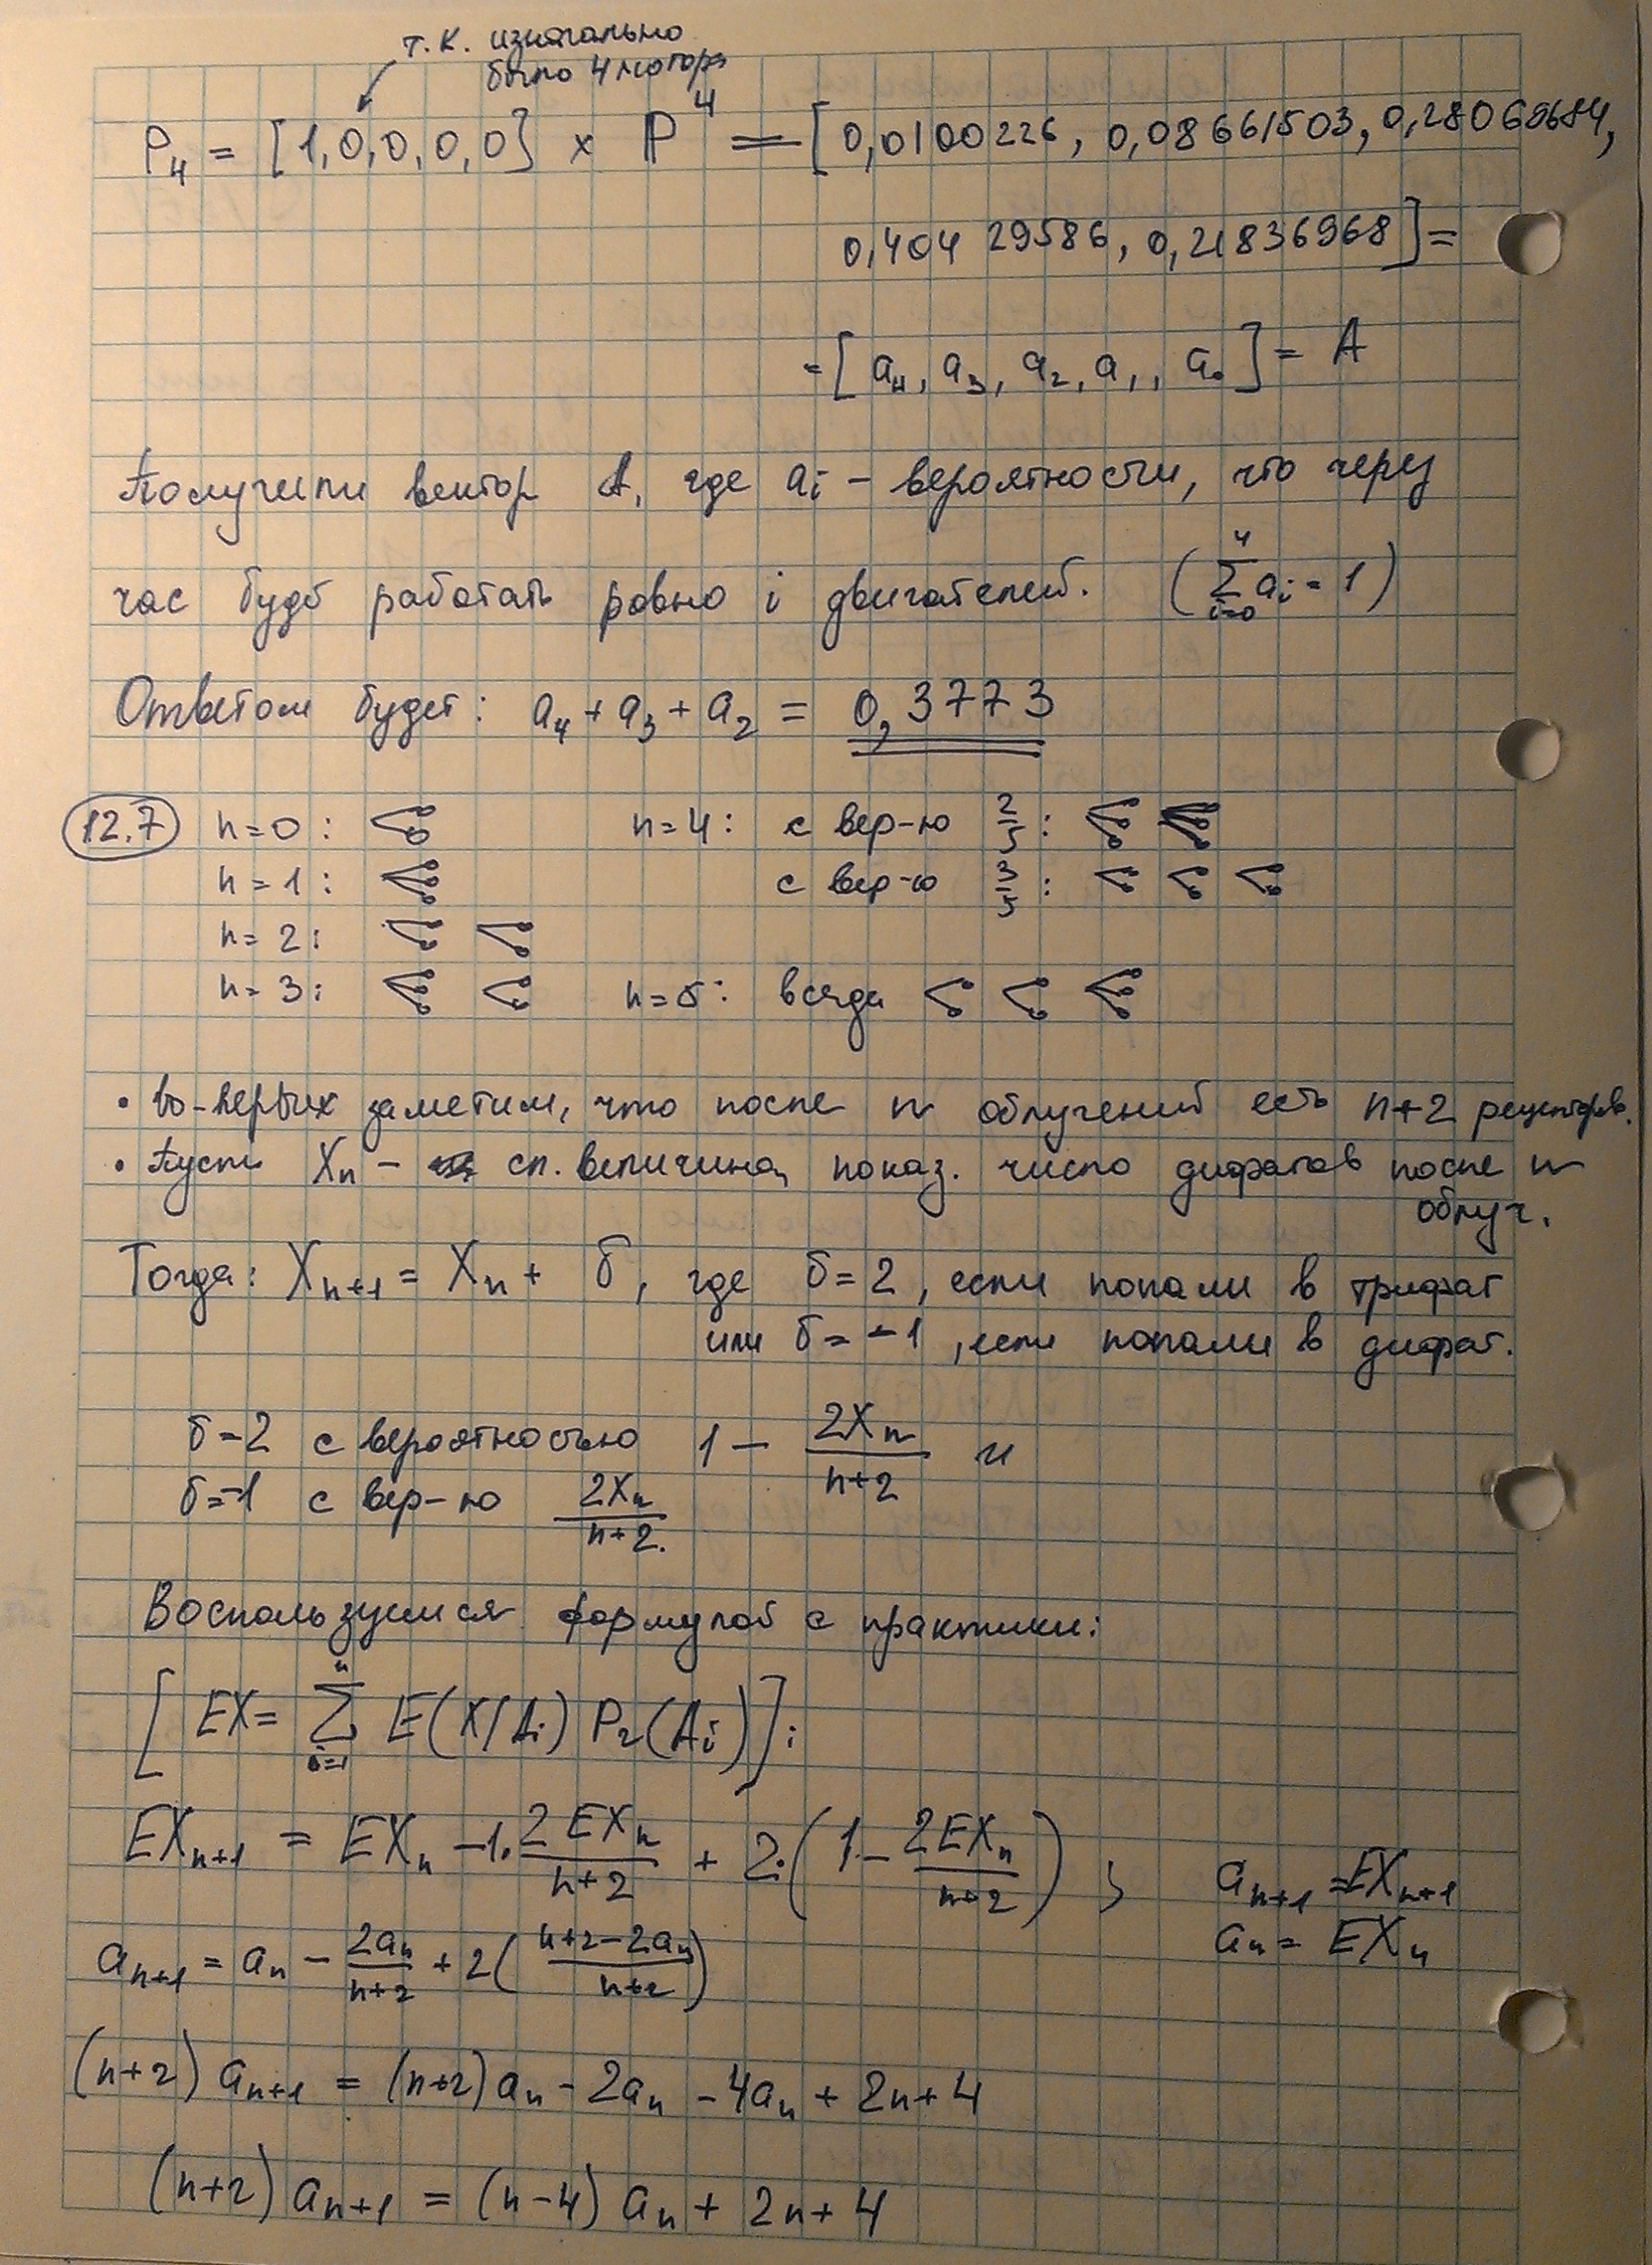 т.к. изначально
было 4 мотора
P₄ = [1,0,0,0,0] × P⁴ = [0,0100226, 0,08661503, 0,28069684,
0,40429586, 0,21836968] =
= [a₄, a₃, a₂, a₁, a₀] = A
Получили вектор A, где aᵢ - вероятности, что через
час будет работать ровно i двигателей. (∑_{i=0}^{4} aᵢ = 1)
Ответом будет: a₄ + a₃ + a₂ = 0,3773
12.7 n=0: n=4: с вер-ю 2/5:
n=1: с вер-ю 3/5:
n=2:
n=3: n=5: всегда
• Во-первых заметим, что после n облучений есть n+2 рецепторов.
• Пусть Xₙ - сл. величина, показ. число дифагов после n
облуч.
Тогда: Xₙ₊₁ = Xₙ + δ, где δ=2, если попали в трифаг
или δ=-1, если попали в дифаг.
δ=2 с вероятностью 1 - 2Xₙ/(n+2) и
δ=-1 с вер-ю 2Xₙ/(n+2).
Воспользуемся формулой с практики:
[EX = ∑_{i=1}^{n} E(X/Aᵢ) Pr(Aᵢ)]:
EXₙ₊₁ = EXₙ - 1·2EXₙ/(n+2) + 2·(1 - 2EXₙ/(n+2)); aₙ₊₁ = EXₙ₊₁
aₙ = EXₙ
aₙ₊₁ = aₙ - 2aₙ/(n+2) + 2((n+2-2aₙ)/(n+2))
(n+2) aₙ₊₁ = (n+2)aₙ - 2aₙ - 4aₙ + 2n + 4
(n+2) aₙ₊₁ = (n-4) aₙ + 2n + 4